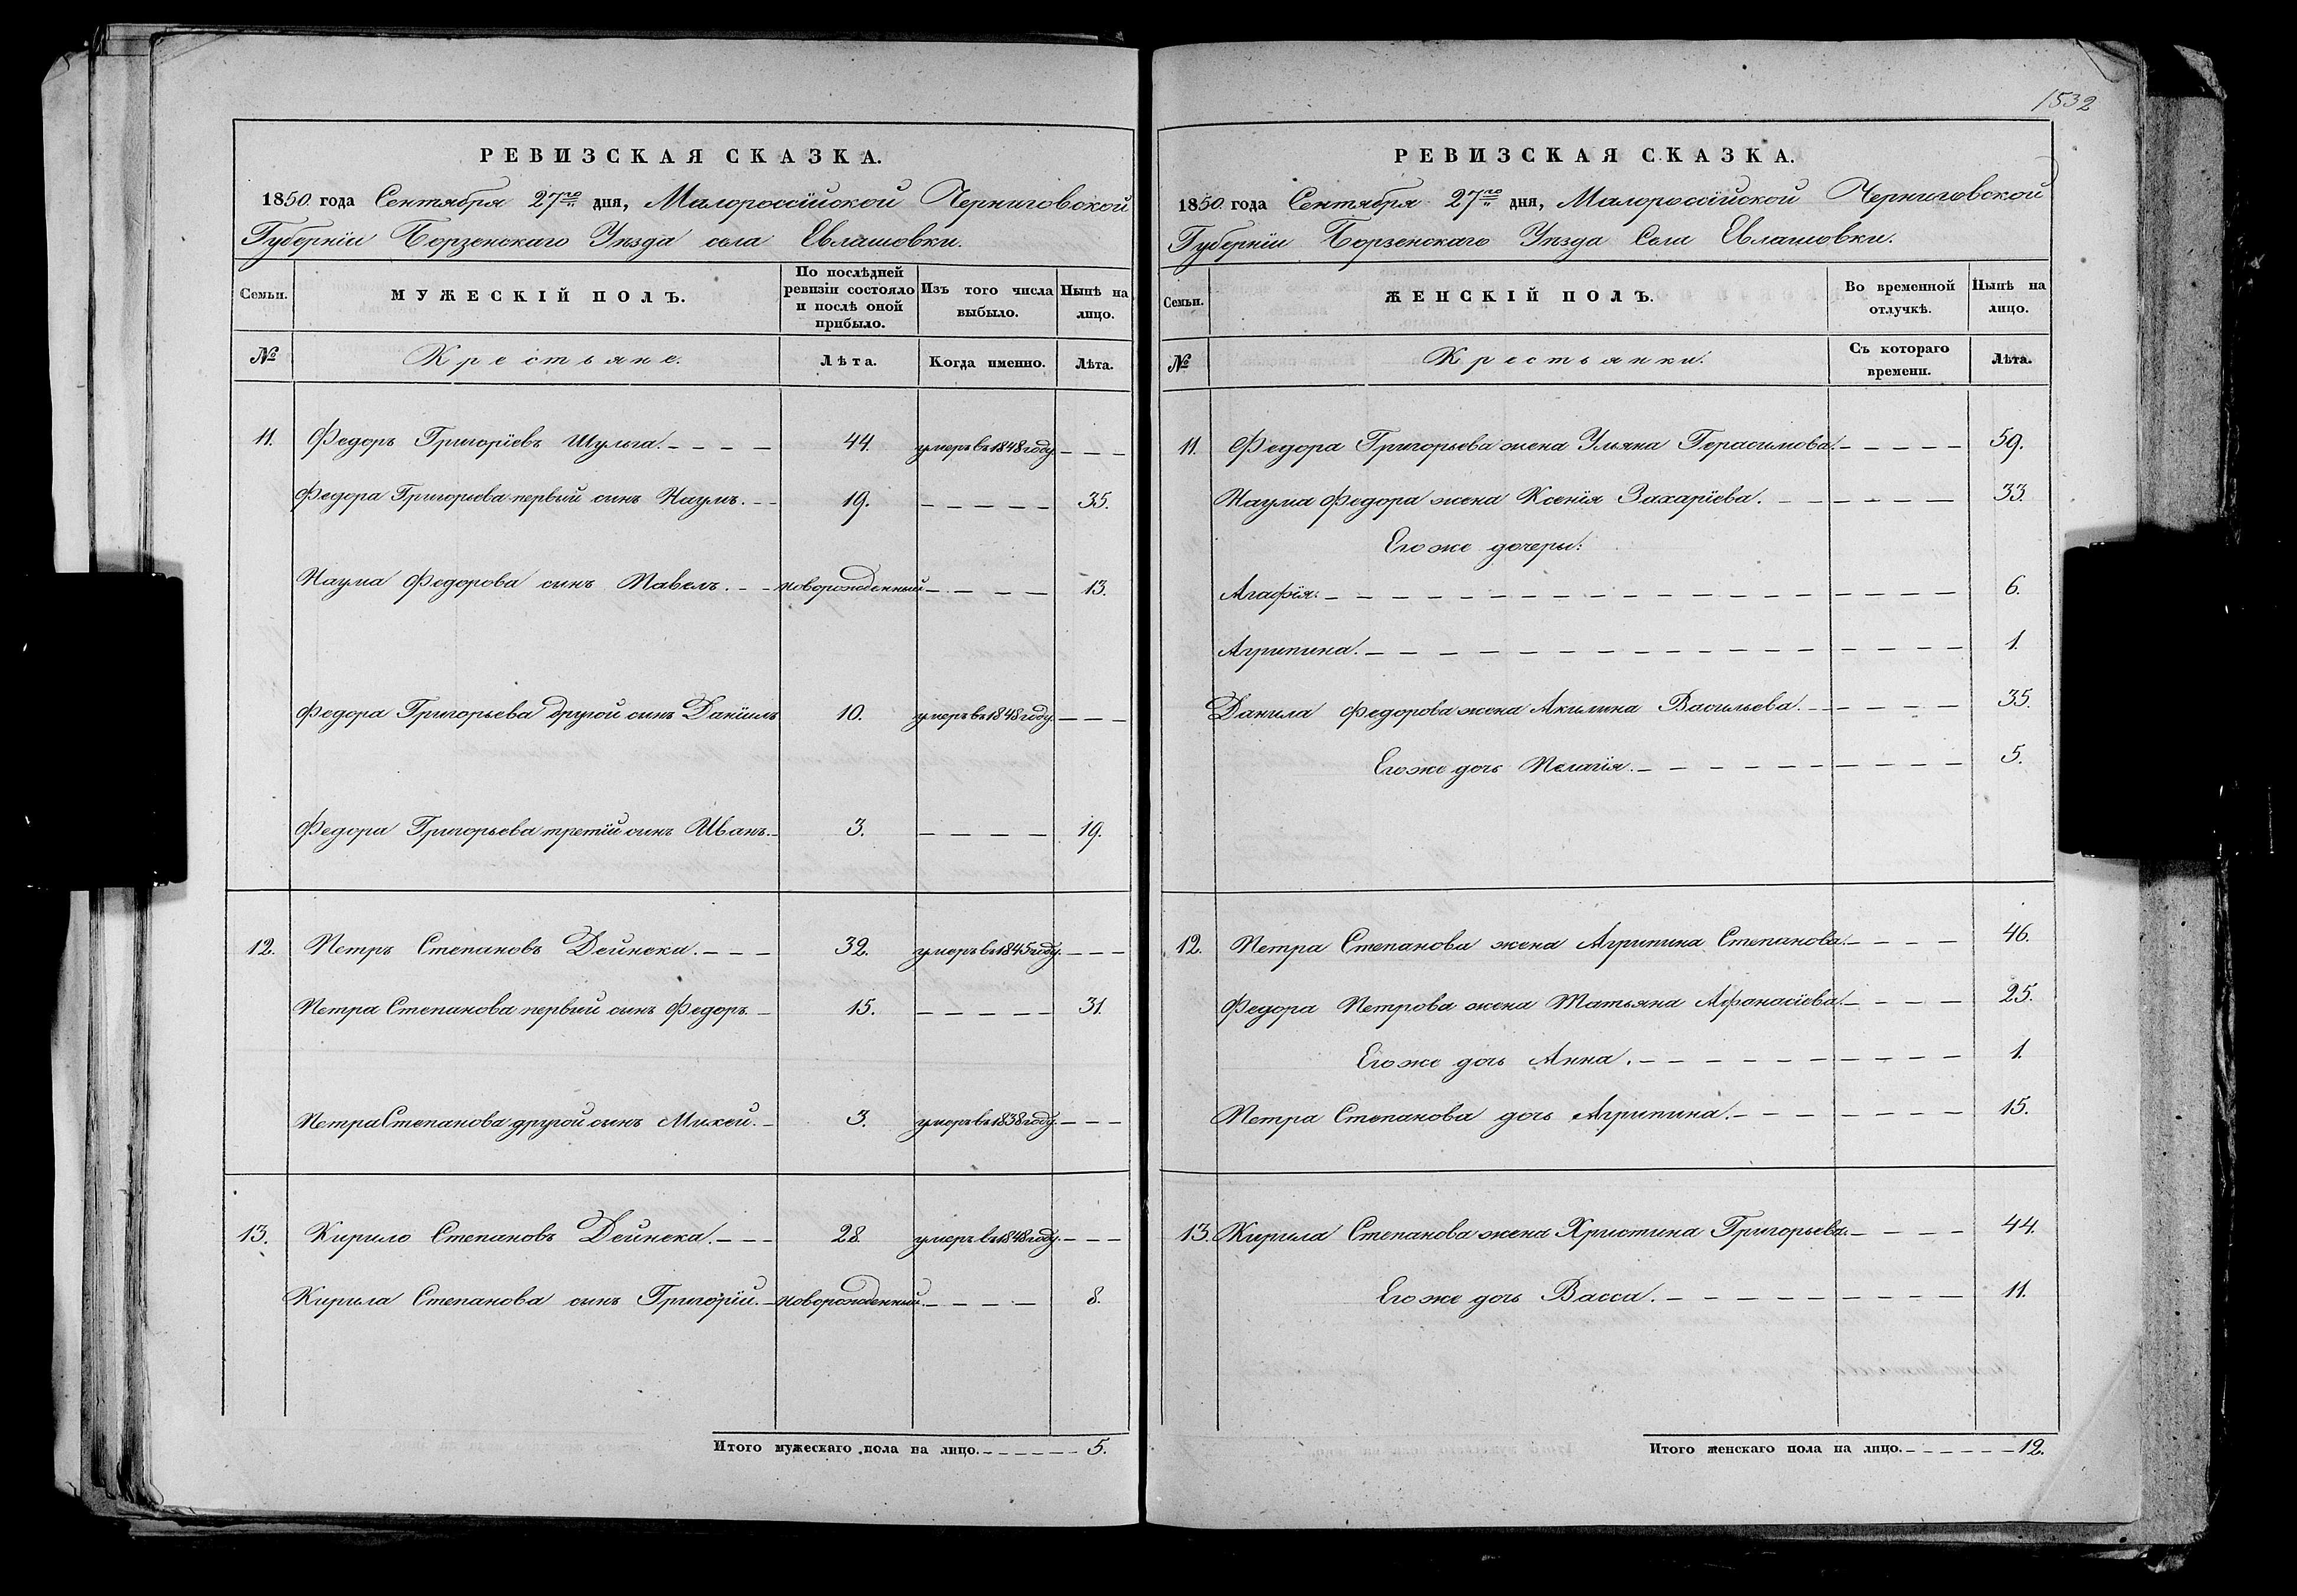 РЕВИЗСКАЯ СКАЗКА.
1850 года Сентября 27го дня, Малороссійской Черниговской
Губерніи Борзенскаго Уѣзда села Евлашовки.
Семьи. МУЖЕСКІЙ ПОЛЪ. По послѣдней ревизіи состояло и послѣ оной прибыло. Изъ того числа выбыло. Нынѣ на лицо.
№ Крестьяне. Лѣта. Когда именно. Лѣта.
11. Федоръ Григоріевъ Шульга. 44. умеръ въ 1848 году.
Федора Григорьева первый сынъ Наумъ. 19. 35.
Наума Федорова сынъ Павелъ. новорожденный 13.
Федора Григорьева другой сынъ Даніилъ 10. умеръ въ 1848 году.
Федора Григорьева третій сынъ Иванъ. 3. 19.
12. Петръ Степановъ Дейнека. 32. умеръ въ 1845 году.
Петра Степанова первый сынъ Федоръ. 15. 31.
Петра Степанова другой сынъ Михей. 3. умеръ въ 1838 году.
13. Кирило Степановъ Дейнека. 28 умеръ въ 1848 году.
Кирила Степанова сынъ Григорій. новорожденный. 8.
Итого мужескаго пола на лицо. 5.
1532
РЕВИЗСКАЯ СКАЗКА.
1850 года Сентября 27го дня, Малороссійской Черниговской
Губерніи Борзенскаго Уѣзда Села Евлашовки.
Семьи. ЖЕНСКІЙ ПОЛЪ. Во временной отлучкѣ. Нынѣ на лицо.
№ Крестьянки. Съ котораго времени. Лѣта.
11. Федора Григорьева жена Ульяна Герасимова. 59.
Наума Федора жена Ксенія Захаріева. 33.
Его же дочери:
Агафія. 6.
Агрипина. 1.
Данила Федорова жена Акилина Васильева. 35.
Его же дочь Пелагія. 5.
12. Петра Степанова жена Агрипина Степанова. 46.
Федора Петрова жена Татьяна Афанасіева. 25.
Его же дочь Анна. 1.
Петра Степанова дочь Агрипина. 15.
13. Кирила Степанова жена Христина Григорьева. 44.
Его же дочь Васса. 11.
Итого женскаго пола на лицо. 12.